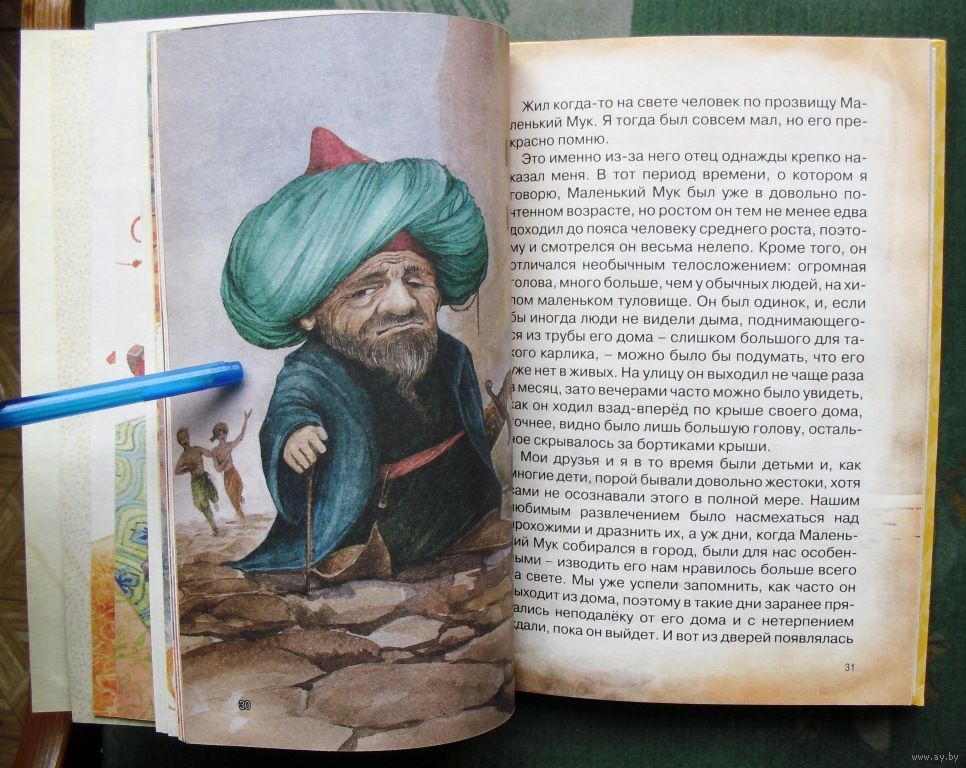 Жил когда-то на свете человек по прозвищу Ма-
ленький Мук. Я тогда был совсем мал, но его пре-
красно помню.
Это именно из-за него отец однажды крепко на-
казал меня. В тот период времени, о котором я
говорю, Маленький Мук был уже в довольно по-
чтенном возрасте, но ростом он тем не менее едва
доходил до пояса человеку среднего роста, поэто-
му и смотрелся он весьма нелепо. Кроме того, он
отличался необычным телосложением: огромная
голова, много больше, чем у обычных людей, на хи-
лом маленьком туловище. Он был одинок, и, если
бы иногда люди не видели дыма, поднимающего-
ся из трубы его дома – слишком большого для та-
кого карлика, – можно было бы подумать, что его
уже нет в живых. На улицу он выходил не чаще раза
в месяц, зато вечерами часто можно было увидеть,
как он ходил взад-вперёд по крыше своего дома,
точнее, видно было лишь большую голову, осталь-
ное скрывалось за бортиками крыши.
Мои друзья и я в то время были детьми и, как
многие дети, порой бывали довольно жестоки, хотя
сами не осознавали этого в полной мере. Нашим
любимым развлечением было насмехаться над
прохожими и дразнить их, а уж дни, когда Малень-
кий Мук собирался в город, были для нас особен-
ными – изводить его нам нравилось больше всего
на свете. Мы уже успели запомнить, как часто он
выходит из дома, поэтому в такие дни заранее пря-
тались неподалёку от его дома и с нетерпением
ждали, пока он выйдет. И вот из дверей появлялась
30
31
www.ay.by